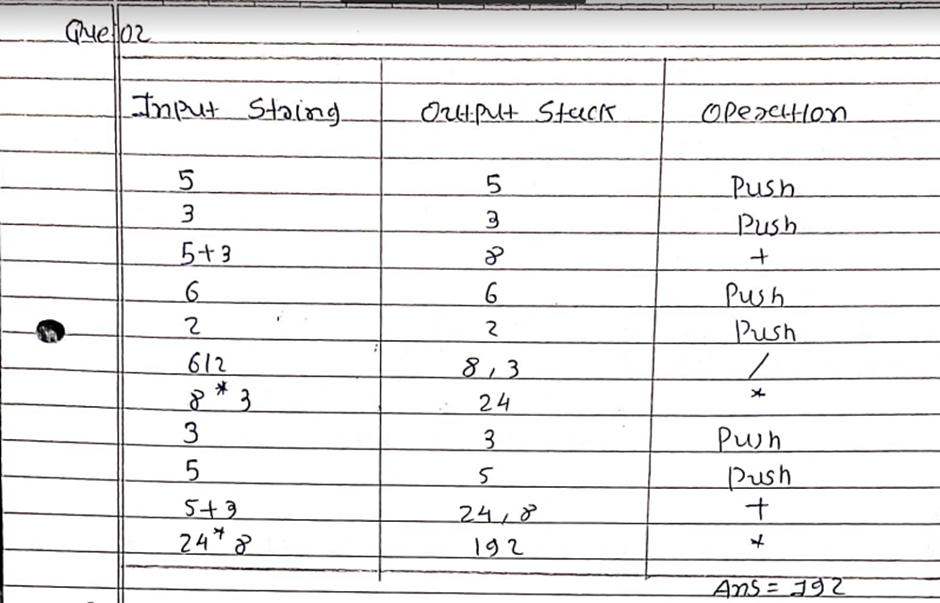 Que 02
Input String Output Stack Operation
5 5 Push
3 3 Push
5+3 8 +
6 6 Push
2 2 Push
6/2 8,3 /
8*3 24 *
3 3 Push
5 5 Push
5+3 24,8 +
24*8 192 *
Ans = 192